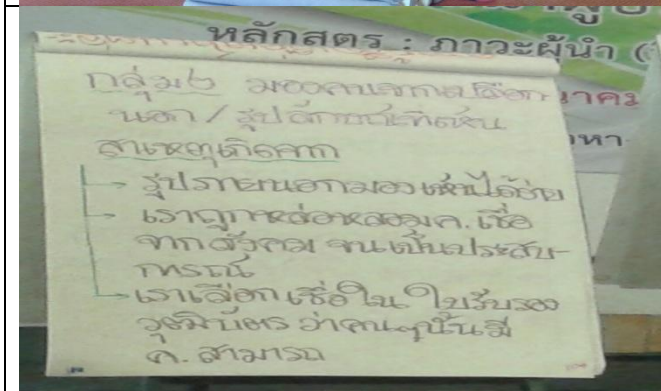 หลักสูตร : ภาวะผู้นำ (
กลุ่ม ๖ มองคนจากเปลือก
นอก / รูปลักษณ์ที่เห็น
สาเหตุเกิดจาก
→ รูปภายนอกมองเห็นได้ง่าย
→ เราถูกหล่อหลอม ค. เชื่อ
จากสังคม จนเป็นประสบ-
การณ์
→ เราเลือกเชื่อใน ใบรับรอง
วุฒิบัตร ว่าคนๆนั้นมี
ค. สามารถ